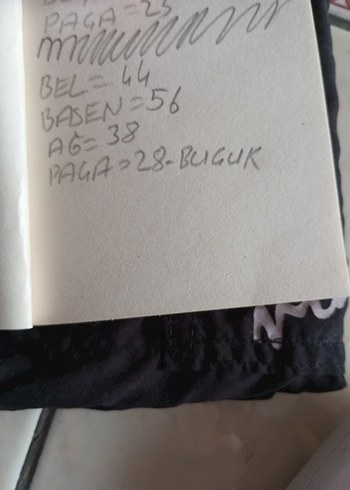 PAGA=23
BEL=44
BASEN=56
AG=38
PAGA=28-BUGUK